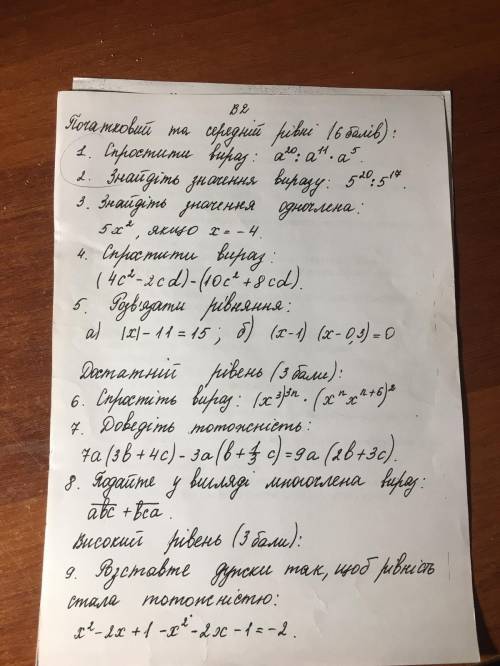 В2
Початковий та середній рівні (6 балів):
1. Спростити вираз: a²⁰ : a¹¹ · a⁵.
2. Знайдіть значення виразу: 5²⁰ : 5¹⁷.
3. Знайдіть значення одночлена:
5x², якщо x = -4.
4. Спростити вираз:
(4c² - 2cd) - (10c² + 8cd).
5. Розв'язати рівняння:
а) |x| - 11 = 15; б) (x-1) (x-0,3) = 0
Достатній рівень (3 бали):
6. Спростіть вираз: (x³)³ⁿ · (xⁿxⁿ⁺⁶)²
7. Доведіть тотожність:
7a(3b+4c) - 3a(b+⅓c) = 9a(2b+3c).
8. Подайте у вигляді многочлена вираз:
a̅b̅c̅ + b̅c̅a̅.
Високий рівень (3 бали):
9. Розставте дужки так, щоб рівність
стала тотожністю:
x² - 2x + 1 - x² - 2x - 1 = -2.